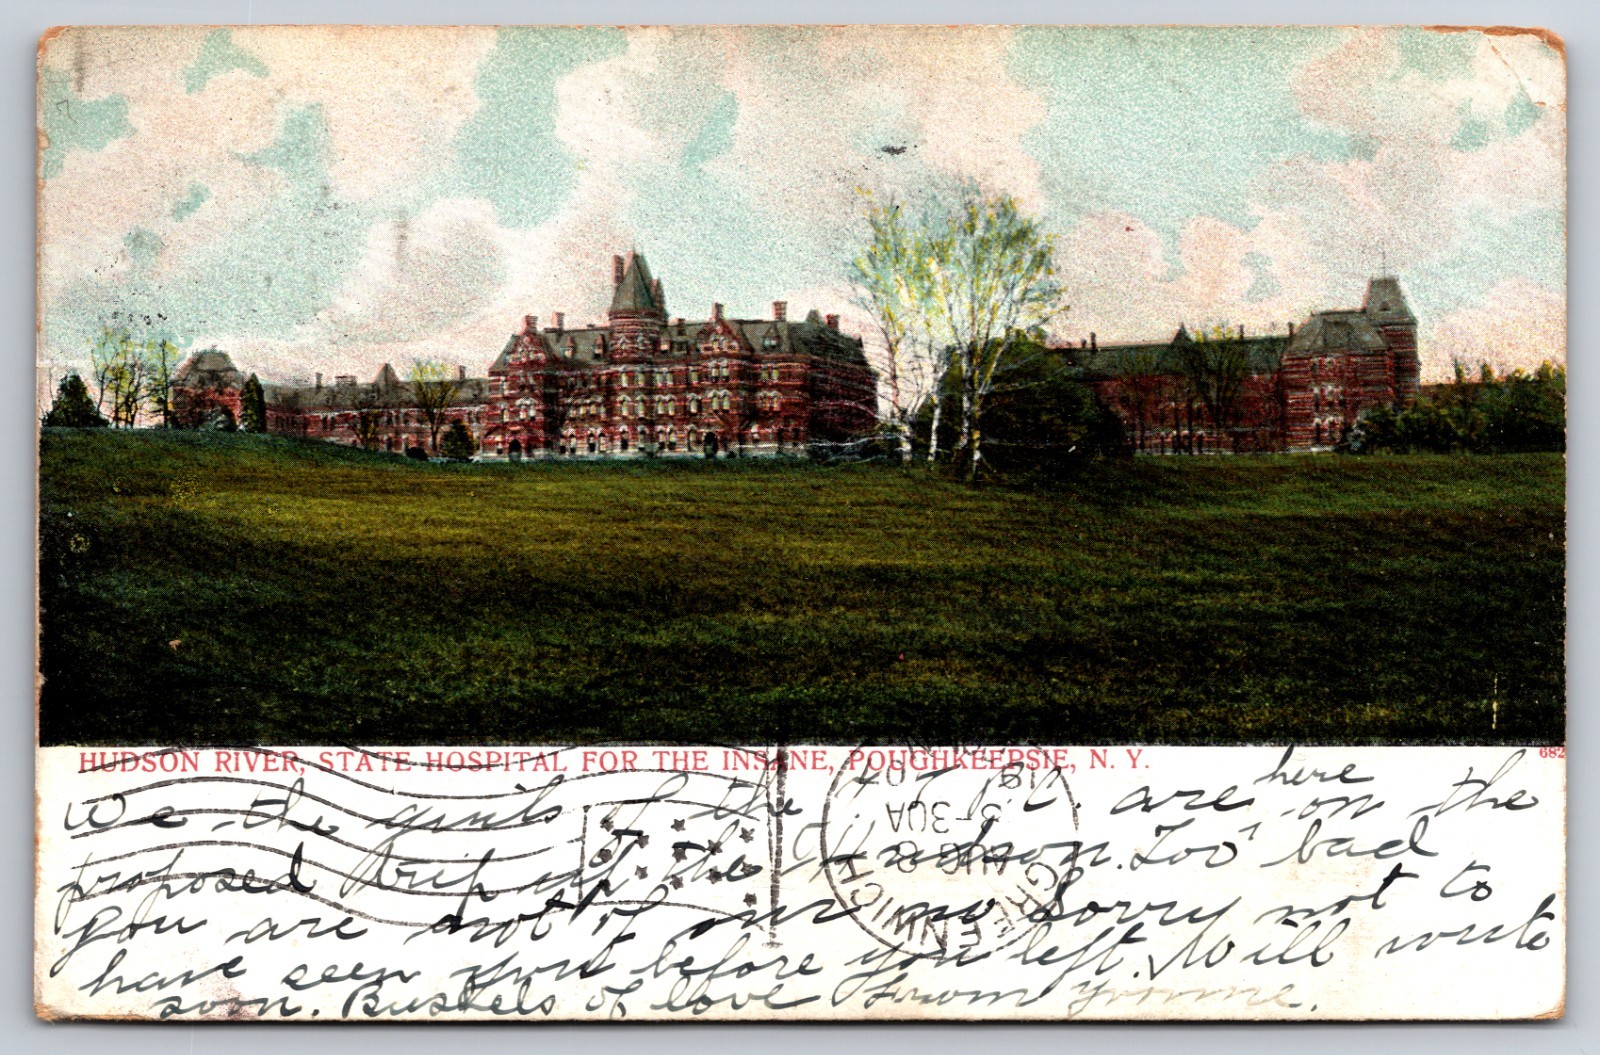 HUDSON RIVER, STATE HOSPITAL FOR THE INSANE, POUGHKEEPSIE, N. Y.
682
We the girls of the are here on the
proposed trip up the Hudson. Too bad
you are not of our no Sorry not to
have seen you before you left. Will write
soon. Buskels of love from Yvonne.
GREENWICH
AUG 8
5-30A
'07